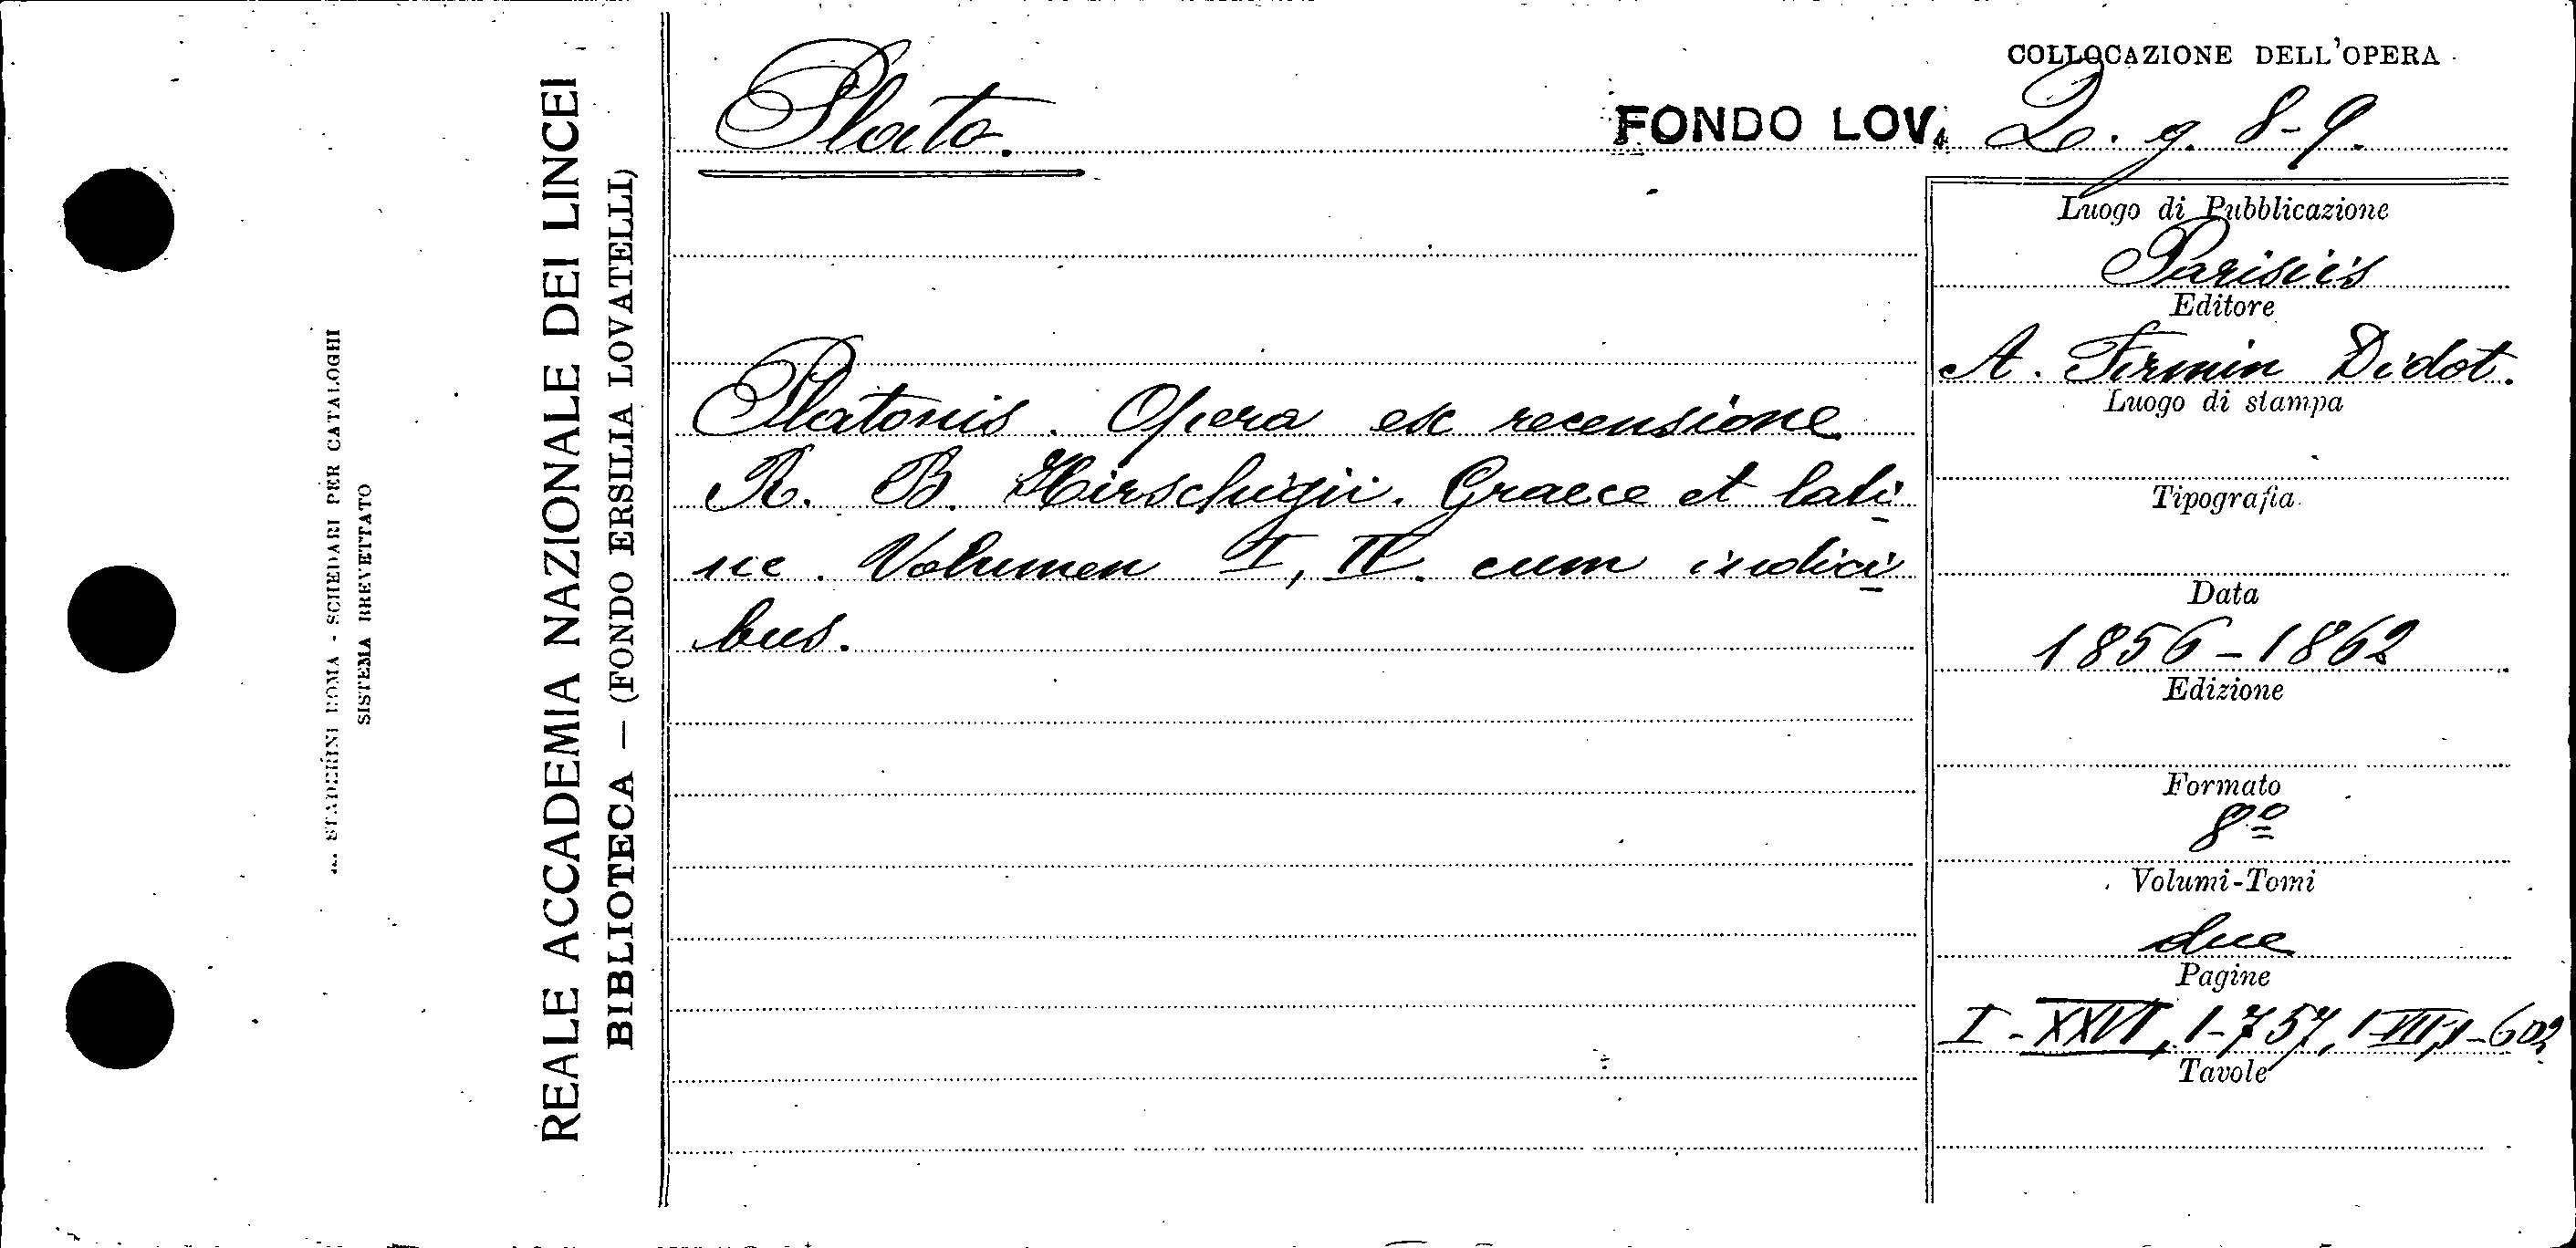 COLLOCAZIONE DELL'OPERA
Plato.
FONDO LOV. 2. g. 8-9.
Platonis. Opera ex recensione
R. B. Hirschigii. Graece et lati
ne. Volumen I, II. cum indici
bus.
Luogo di Pubblicazione
Parisiis
Editore
A. Firmin Didot.
Luogo di stampa
Tipografia
Data
1856-1862
Edizione
Formato
8º
Volumi-Tomi
due
Pagine
I-XXVI, 1-757, I-VIII, 1-602
Tavole
REALE ACCADEMIA NAZIONALE DEI LINCEI
BIBLIOTECA — (FONDO ERSILIA LOVATELLI)
STADERINI ROMA - SCHEDARI PER CATALOGHI
SISTEMA BREVETTATO